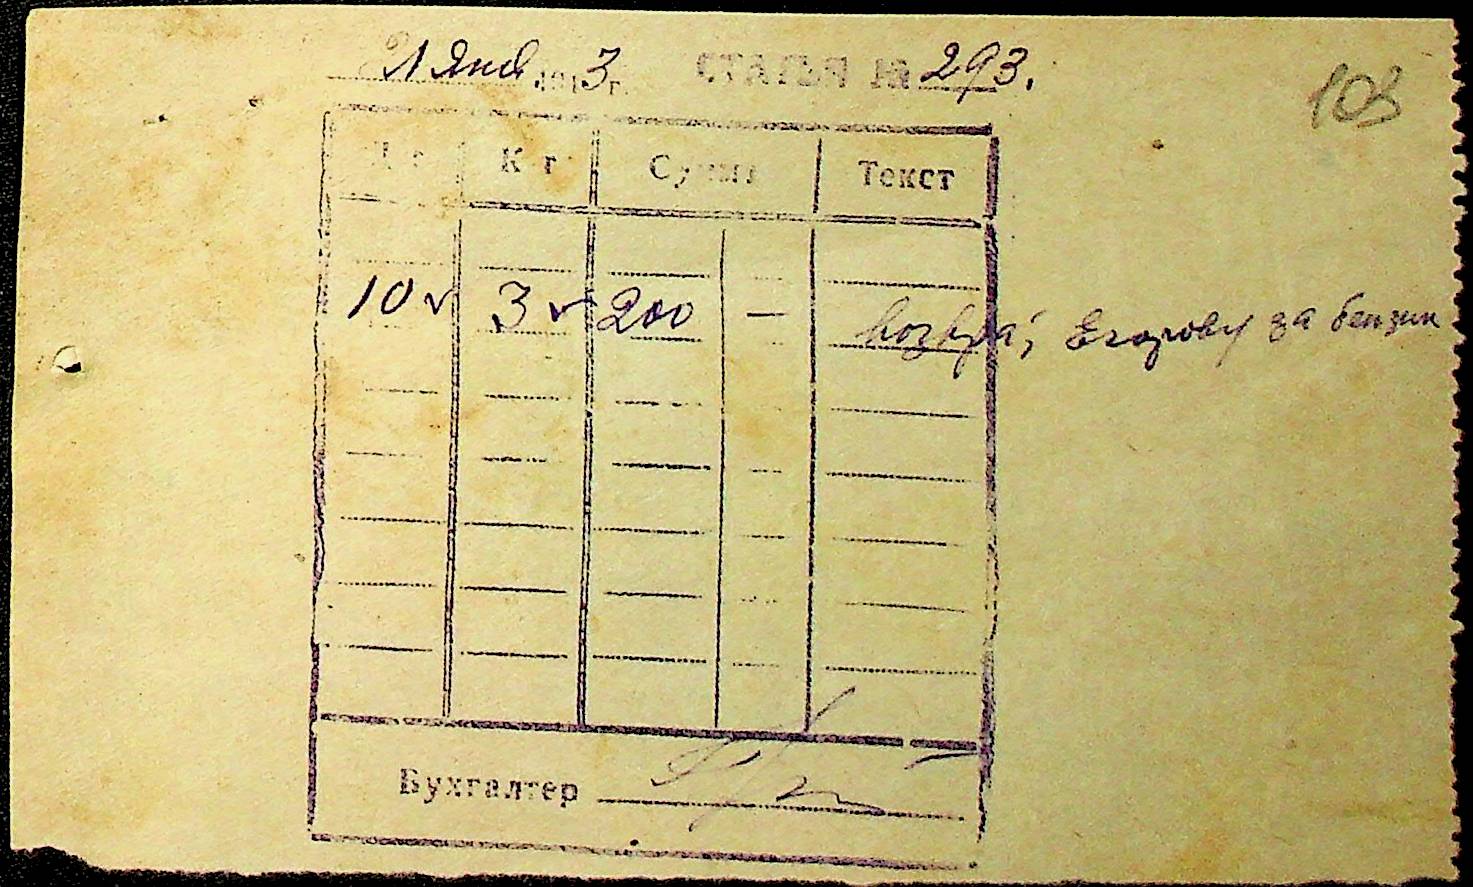 21 Янв 1943 г. СТАТЬЯ № 293.
103
Д-т К-т Сумма Текст
10 ✓ 3 ✓ 200 — возвра; Егорову за бензин
Бухгалтер